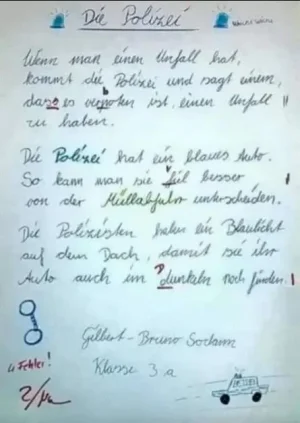 Die Polizei
Wenn man einen Unfall hat,
kommt die Polizei und sagt einem,
dass es verboten ist, einen Unfall
zu haben.
Die Polizei hat ein blaues Auto.
So kann man sie fiel besser
von der Müllabfuhr unterscheiden.
Die Polizisten haben ein Blaulicht
auf dem Dach, damit sie ihr
Auto auch im dunkeln noch finden.
Gilbert-Bruno Sodann
Klasse 3a
4 Fehler!